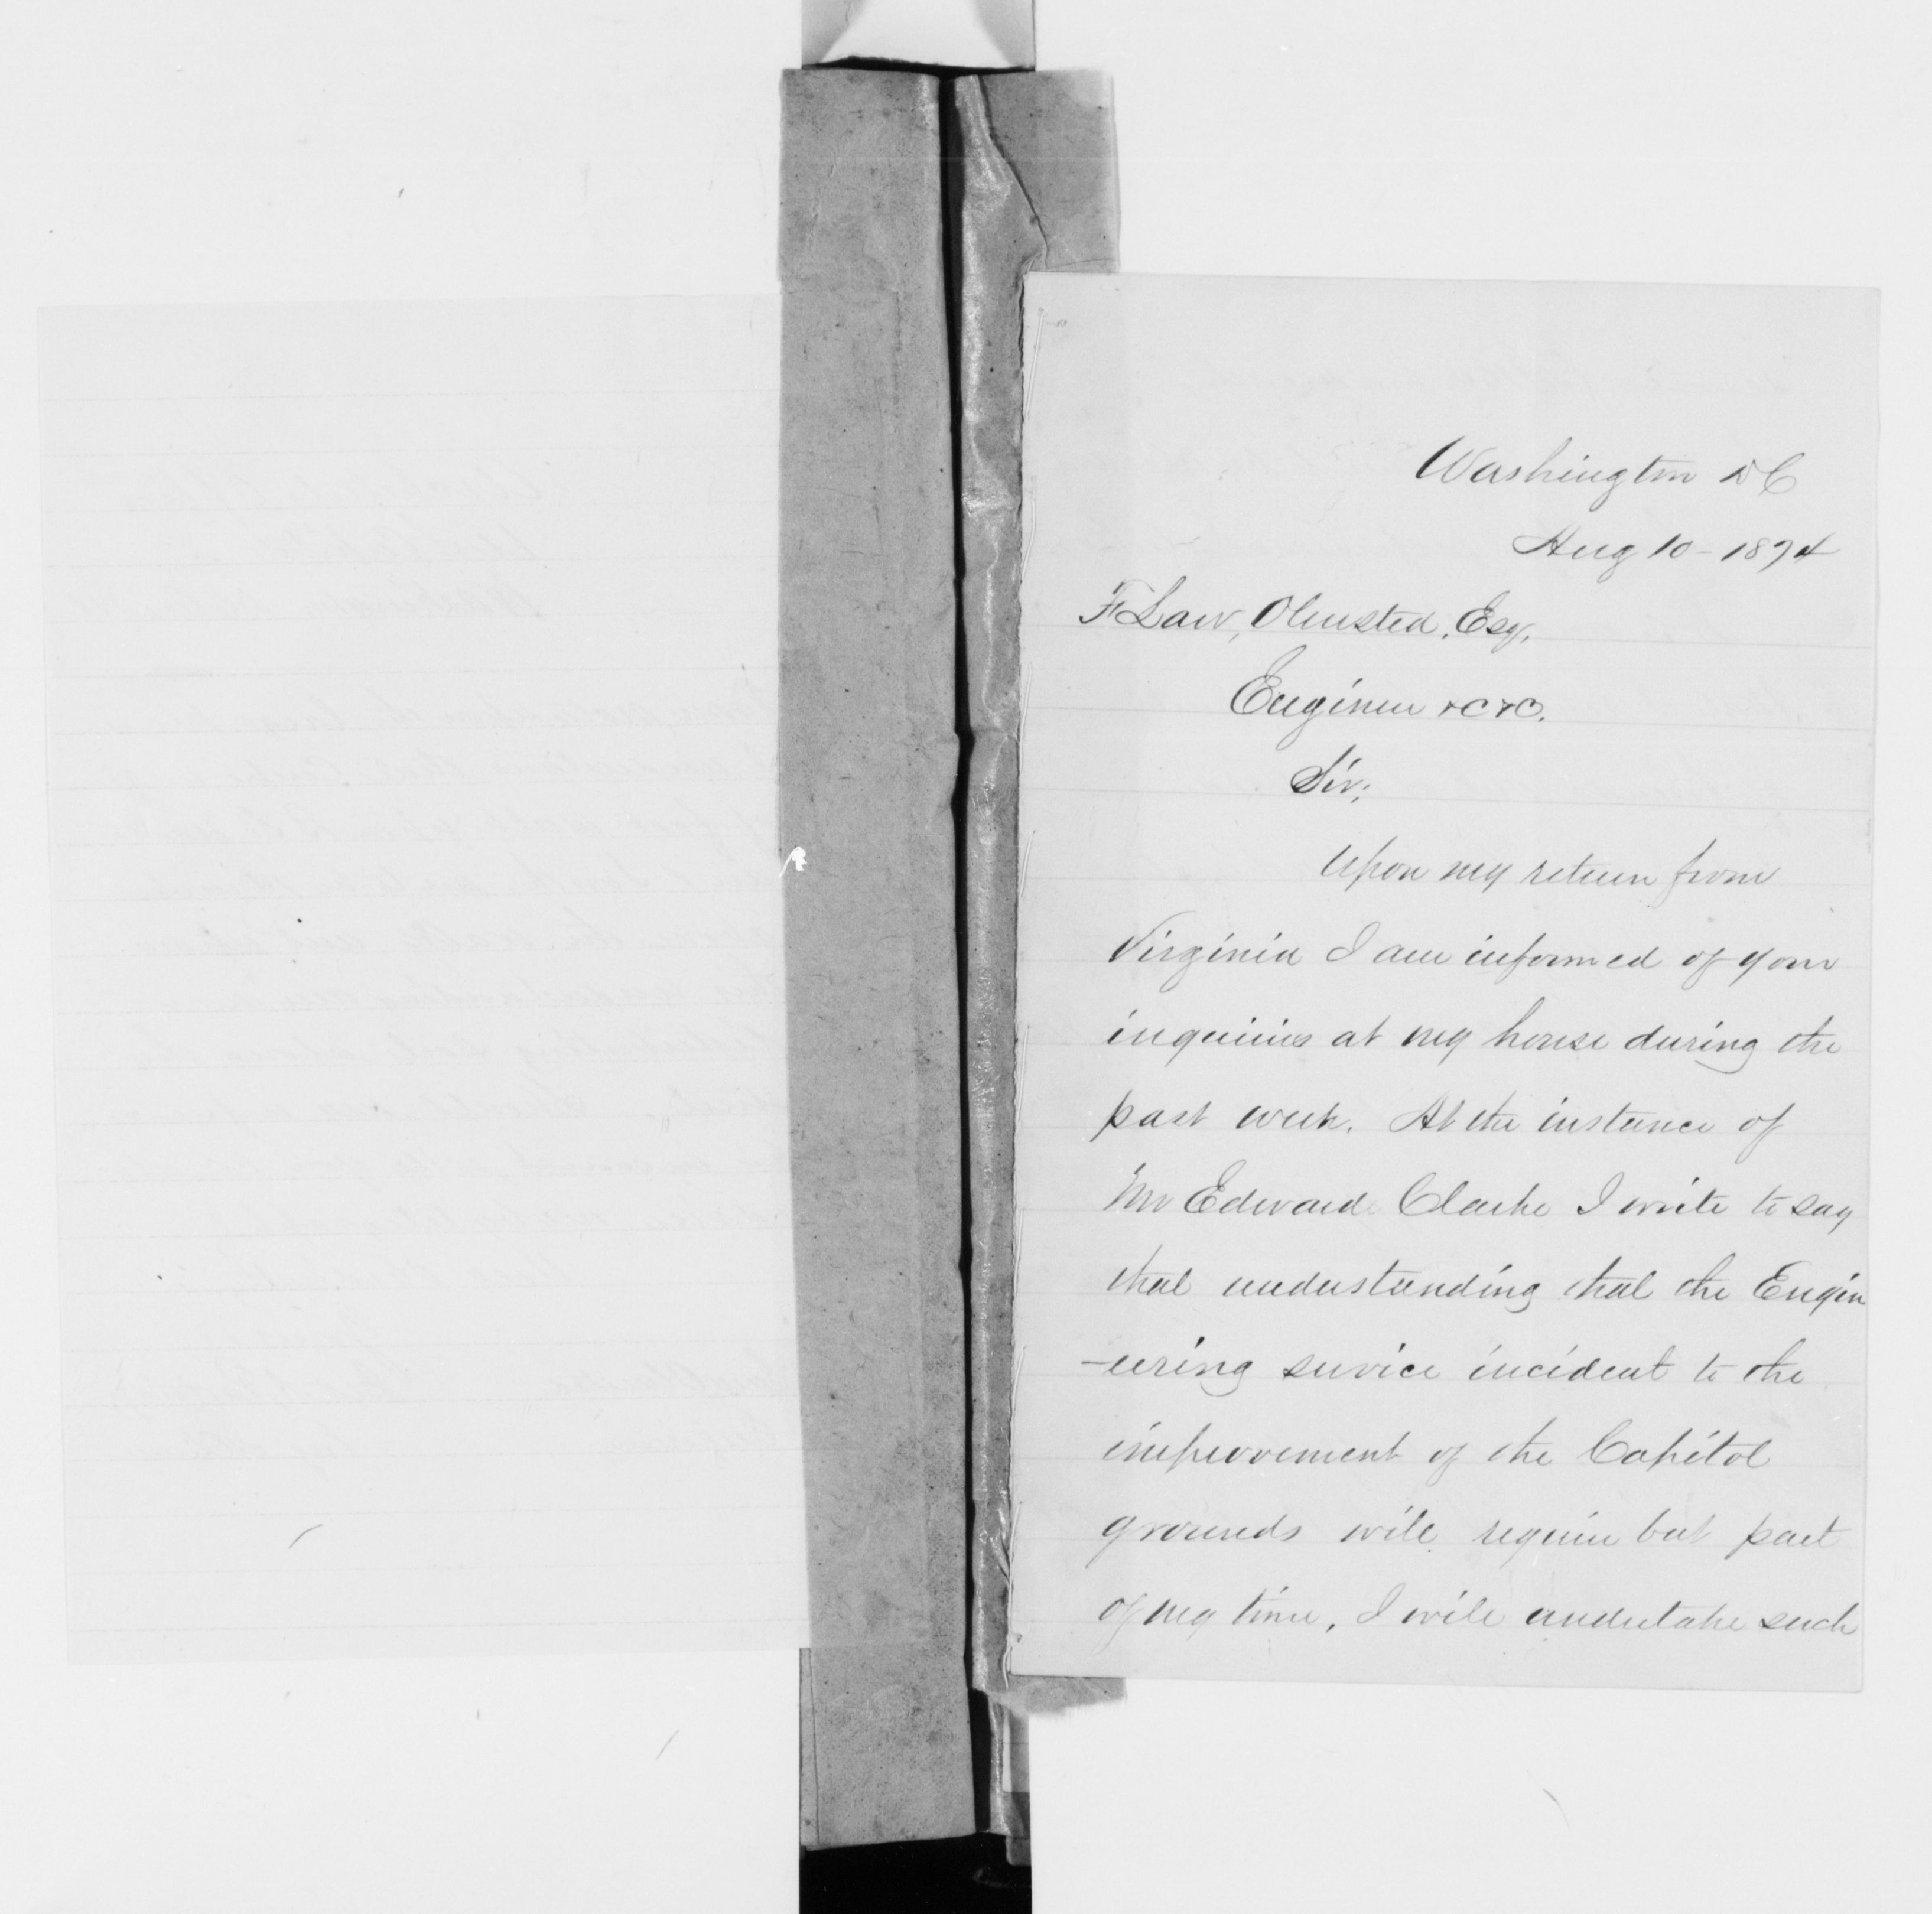 Washington DC
Aug 10 - 1874
F Law, Olmsted, Esq,
Engineer &C&C.
Sir;
Upon my return from
Virginia I am informed of your
inquiries at my house during the
past week. At the instance of
Mr Edward Clarke I write to say
that understanding that the Engin
-eering service incident to the
improvement of the Capitol
grounds will require but part
of my time, I will undertake such